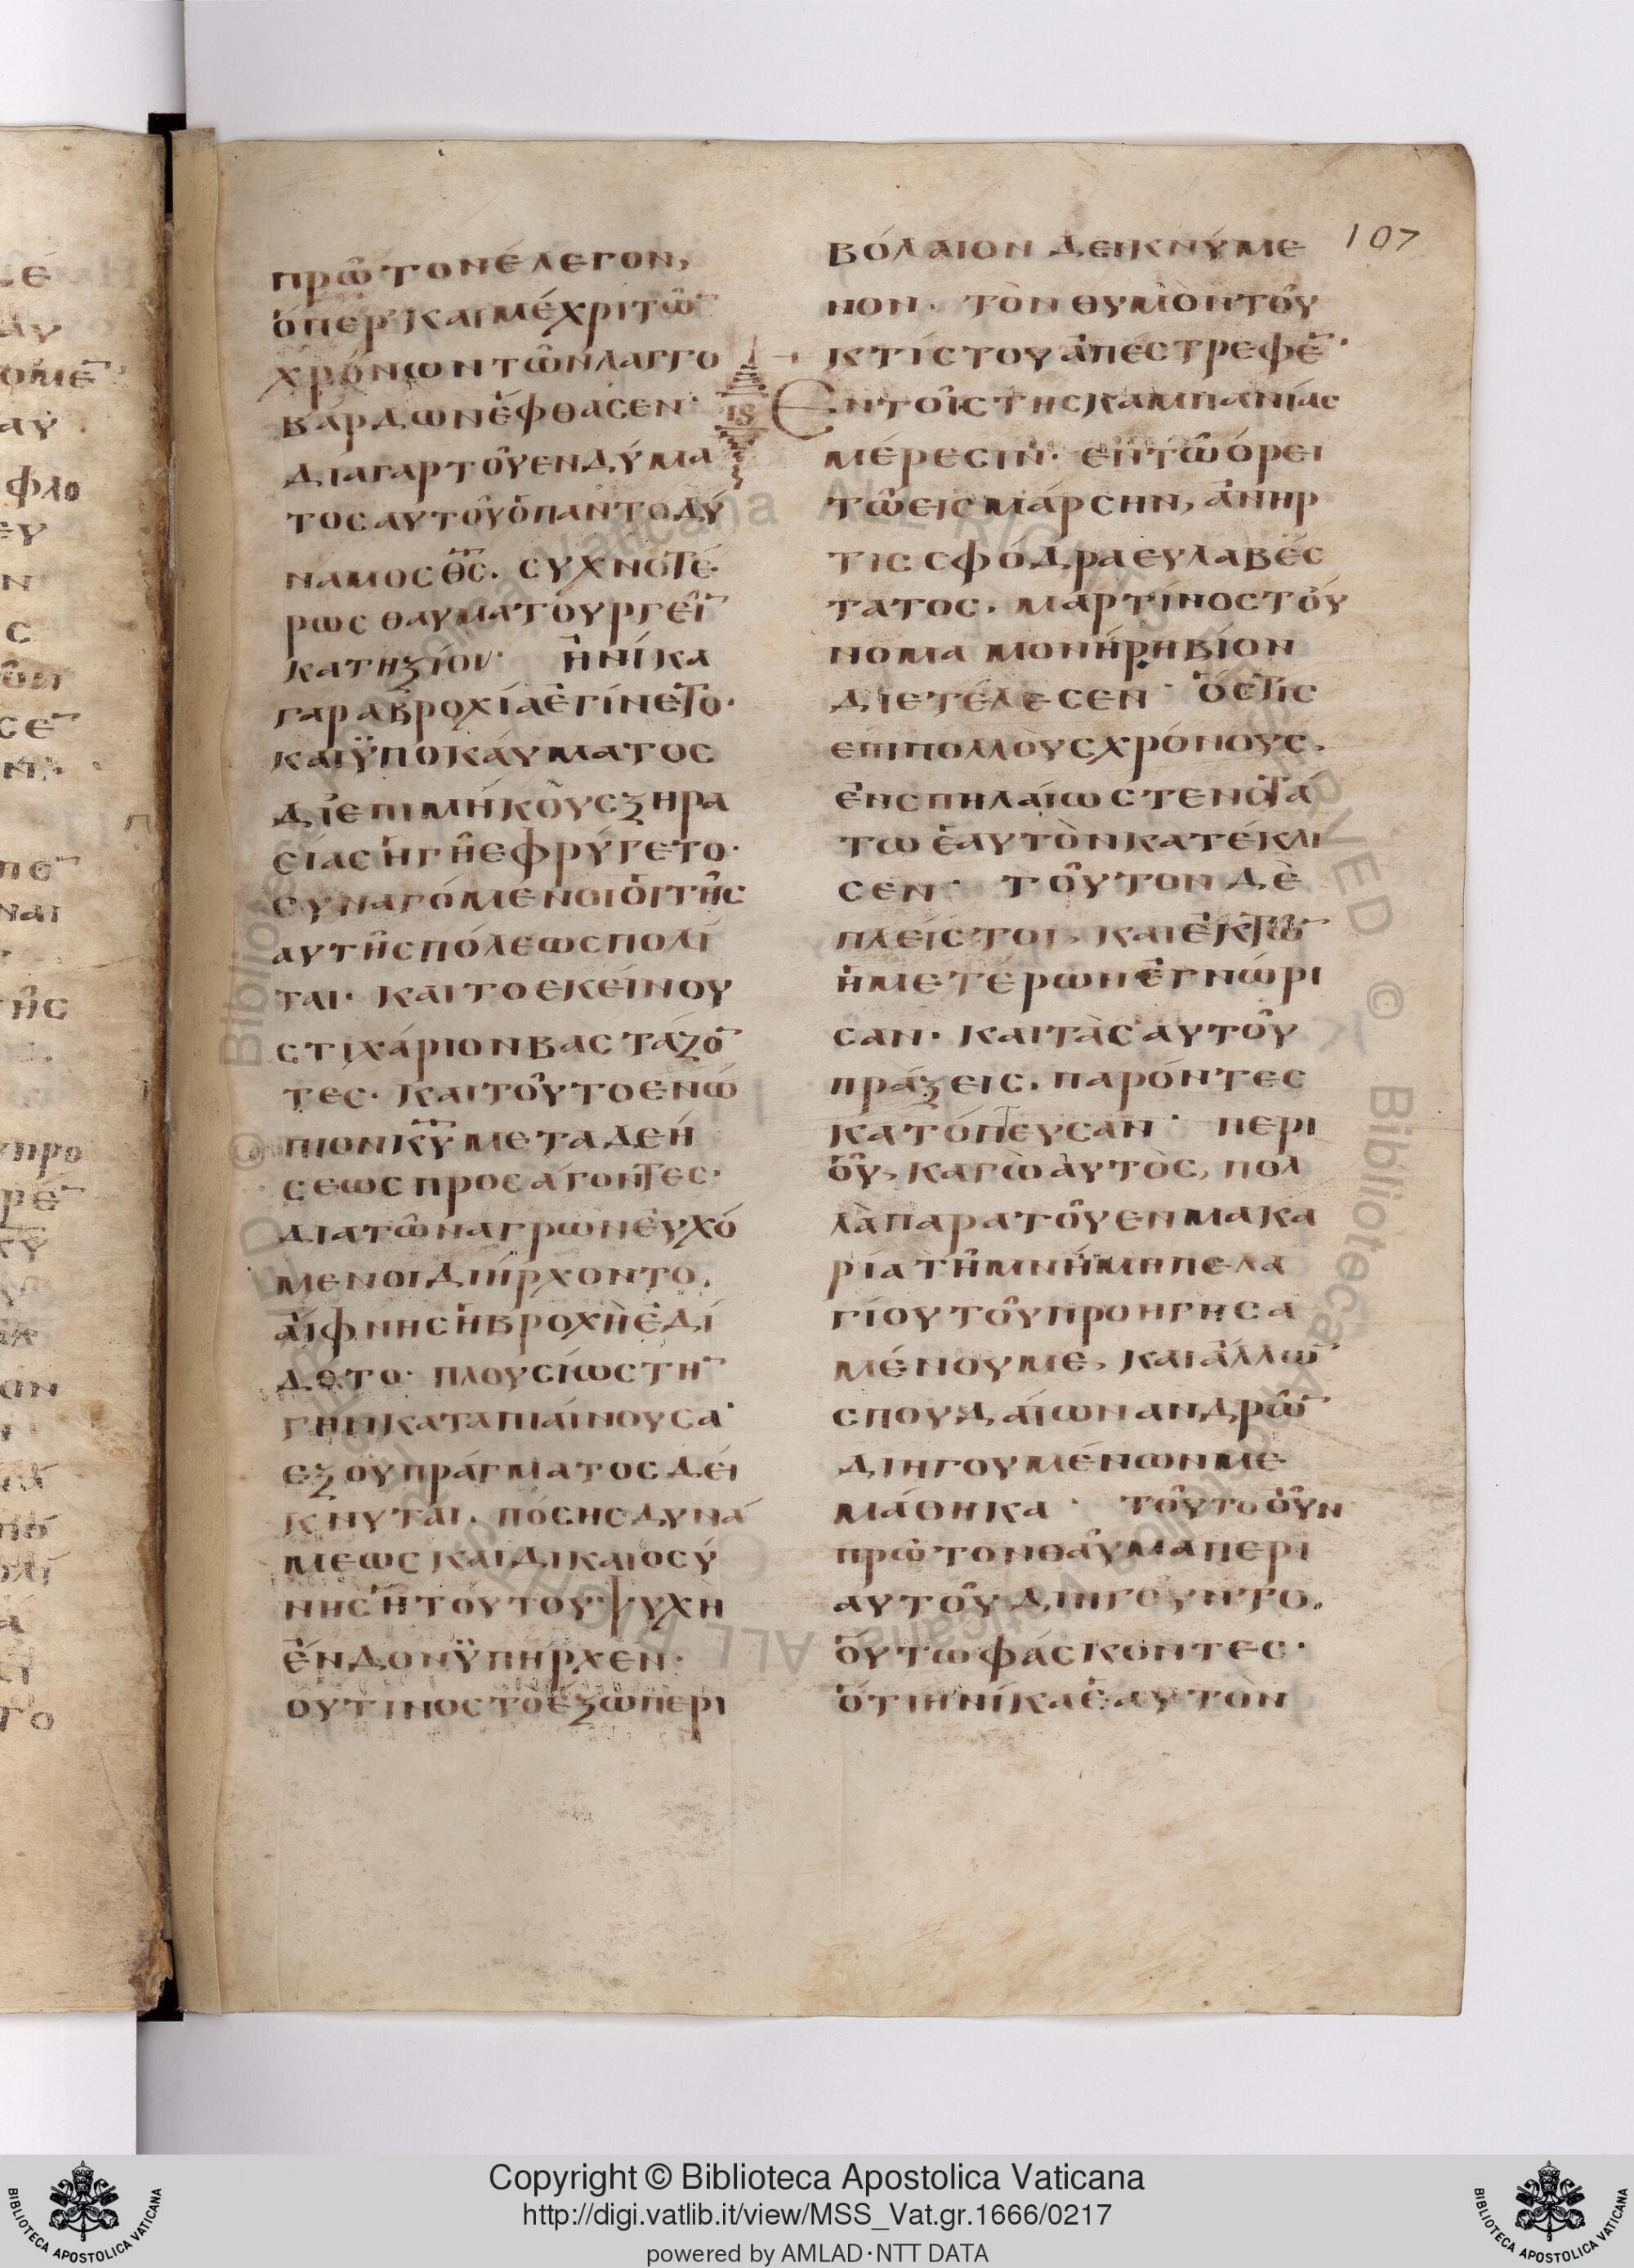 πρῶτονέλεγον,
ὅπερ καιμέχριτῶ̅
χρόνωντῶνλαγγο
βάρδωνἔφθασεν·
διαγαρτοῦενδύμα
τοςαυτοῦὁπαντοδύ
ναμοςθ̅ς̅. συχνοτέ
ρωςθαυματουργεῖ̅
κατηξίου· ἡνίκα
γαραβροχίαἐγίνετο·
καιϋποκάυματος
διεπιμήκουςξηρα
σίαςἡγῆεφρύγετο·
συναγόμενοιὁιτῆς
αυτῆςπόλεωςπολί
ται· καιτοεκείνου
στιχάριονβαστάζο̅
τες· καιτοῦτοενώ
πιονκ̅υ̅μεταδεή
σεωςπροσάγοντες·
διατῶναγρωνἐυχό
μενοιδιήρχοντο.
ἄιφνηςἡβροχὴἐδί
δοτο· πλουσίωςτη̅
γηνκαταπιαίνουσα·
εξουπράγματοςδεί
κνυται. πόσηςδυνά
μεωςκαιδικαιοσύ
νηςἡτούτουψυχὴ
ἔνδονϋπῆρχεν·
ουτινοςτοέξωπερι
107
βόλαιονδεικνύμε
νον. τὸνθυμὸντοῦ
κτίστουἀπέστρεφε̅·
ιϛ Εντοῖςτηςκαμπανίας
μέρεσιν· εντῶόρει
τῶεισμάρσην, ἀνηρ
τιςσφόδραευλαβέσ
τατος. μαρτίνοςτοὔ
νομαμονήρηβίον
διετέλεσεν· ὅστις
επιπολλοὺςχρόνους.
ἐνσπηλαίωστενοτά
τωἑαυτὸνκατέκλι
σεν· τοῦτονδὲ
πλείστοι, καιἐκτῶ̅
ἡμετέρωνἐγνώρι
σαν· καιτὰςαυτοῦ
πράξεις. παρόντες
κατόπτευσαν· περι
οὗ, καγὼἀυτὸς, πολ
λὰπαρατοῦενμακα
ρίατῆμνήμηπελα
γίουτοῦπροηγησα
μένουμε, καιἄλλω̅
σπουδαίωνανδρῶ̅
διηγουμένωνμε
μάθηκα· τοῦτοὀῦν
πρῶτονθαῦμαπερι
αυτοῦδιηγοῦντο.
ὅυτωφάσκοντες·
ὅτιηνίκαἑαυτὸν
Copyright © Biblioteca Apostolica Vaticana
http://digi.vatlib.it/view/MSS_Vat.gr.1666/0217
powered by AMLAD·NTT DATA
BIBLIOTECA APOSTOLICA VATICANA
BIBLIOTECA APOSTOLICA VATICANA